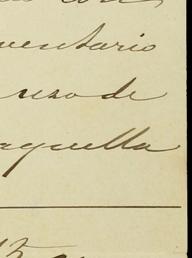 con
ventario
uso de
aquella
15